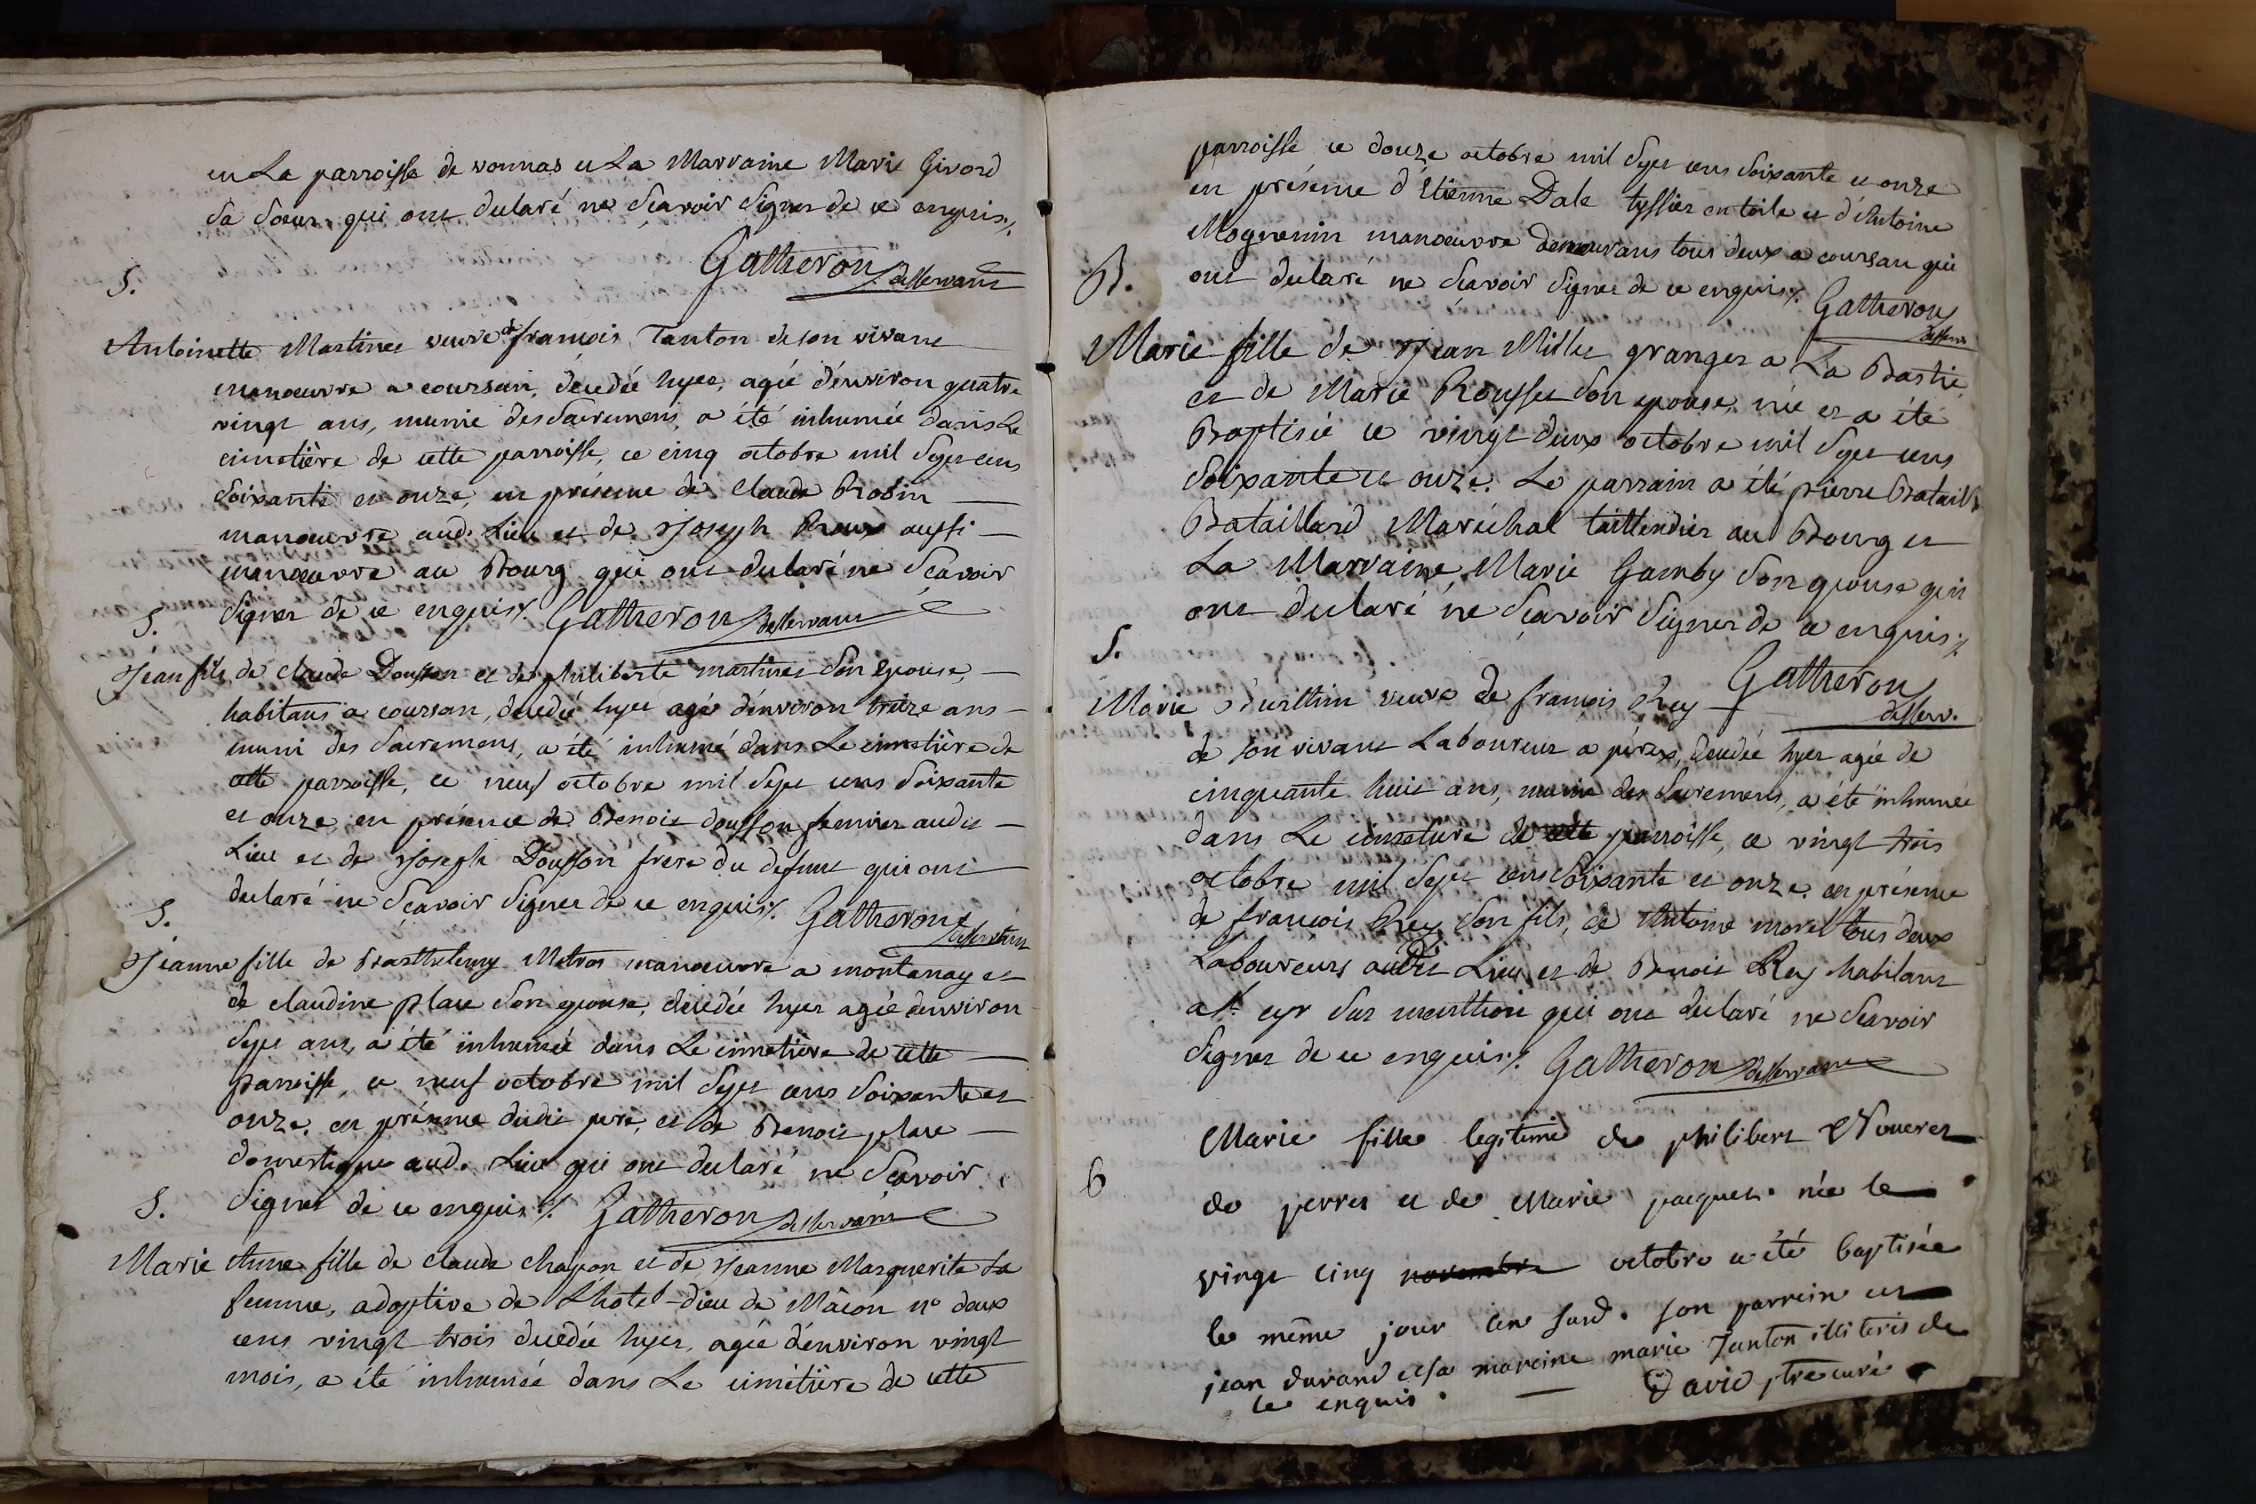 en La parroisse de vonnas et La Marraine Marie Givord
Sa Soeur qui ont declaré ne Sçavoir Signer de ce enquis
Gatheron desservant
S.
Antoinette Martinet veuve de françois Tanton de son vivant
manoeuvre a coursan, decedée hyer, agée d'environ quatre
vingt ans, munie des Sacremens, a été inhumée dans Le
cimetière de cette parroisse, ce cinq octobre mil Sept cens
Soixante et onze, en présence de Claude Robin
manoeuvre aud. Lieu et de Joseph Roux aussi
manoeuvre au Bourg qui ont declaré ne Sçavoir
Signer de ce enquis. Gatheron desservant
S.
Jean fils de Claude Dousson et de philiberte martinet Son Epouse,
habitans a coursan, decedé hyer agé d'environ treize ans
muni des Sacremens, a été inhumé dans Le cimetière de
cette parroisse, ce neuf octobre mil Sept cens Soixante
et onze, en présence de Benoit dousson fermier audit
Lieu et de Joseph Dousson frere du defunt qui ont
declaré ne Sçavoir Signer de ce enquis. Gatheron desservant
S.
Jeanne fille de Barthelemy Metras manoeuvre a montanay et
de claudine place Son epouse, decedée hyer agée d'environ
Sept ans, a été inhumée dans Le cimetière de cette
parroisse, ce neuf octobre mil Sept cens Soixante et
onze, en présence dudit pere, et de Benoit place
domestique aud. Lieu qui ont declaré ne Sçavoir
Signer de ce enquis. Gatheron desservant
S.
Marie Anne fille de Claude Chapon et de Jeanne Marguerite Sa
femme, adoptive de L'hotel-dieu de Mâcon n° deux
cens vingt trois decedée hyer, agée d'environ vingt
mois, a été inhumée dans Le cimetière de cette
parroisse ce douze octobre mil Sept cens Soixante et onze
en présence d'Etienne Dale tyssier en toile et d'Antoine
Mognenin manoeuvre demeurans tous deux a coursan qui
ont declaré ne Sçavoir Signer de ce enquis. Gatheron
desserv.
B.
Marie fille de Jean Millet granger a La Bastie
et de Marie Rousset Son epouse, née et a été
Baptisée ce vingt deux octobre mil Sept cens
Soixante et onze. Le parrain a été pierre Bataill
Bataillard Maréchal taillendier au Bourg et
La Marraine Marie Gamby Son epouse qui
ont declaré ne Sçavoir Signer de ce enquis
Gatheron
desserv.
S.
Marie veuve de françois Rey
de son vivant Laboureur a pérex, decedée hyer agée de
cinquante huit ans, munie des Sacremens, a été inhumée
dans Le cimetiere de cette parroisse, ce vingt trois
octobre mil Sept cens Soixante et onze en présence
de françois Rey Son fils, de Antoine morel tous deux
Laboureurs audit Lieu et de Benoit Rey habitant
a St. cyr Sur menthon qui ont declaré ne Sçavoir
Signer de ce enquis. Gatheron desservant
Marie fille legitime de philibert
B
de perrex et de Marie paquet née le
vingt cinq novembre octobre a été baptisée
le même jour son parrein est
jean durand et sa mareine marie Tanton illiteris de
ce enquis.
David ptre curé